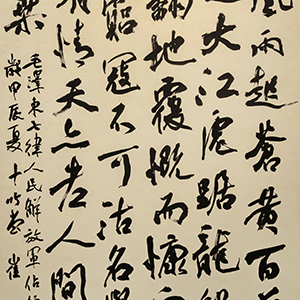 風雨起蒼黄百
過大江虎踞龍
翻地覆慨而慷
窮寇不可沽名學
有情天亦老人間
桑
毛澤東七律人民解放軍佔領
歲甲辰夏十
崔